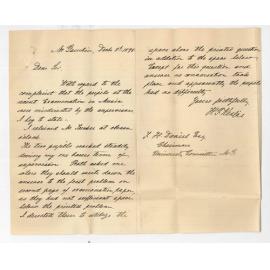 Dear Sir
With regard to the
complaint that the pupils at the
recent Examination in Music
were misdirected by the supervisor
I beg to state
I relieved Mr at
The two pupils worked steadily
during my one hours term of
supervision. Ruth asked me
where they should write down the
answer to the first problem on
second page of examination paper,
as they had not sufficient space
below the printed problem
I directed them to utilize the
space above the printed question
in addition to the space below.
Except for this question and
answer no conversation took
place and apparently the pupils
had no difficulty.
Yours faithfully
Esq
Chairman